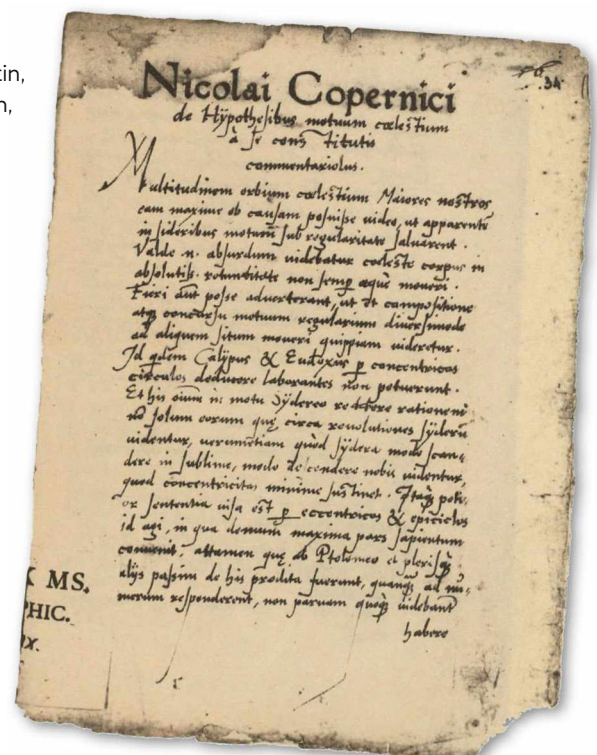 tin,
n,
34
Nicolai Copernici
de Hypothesibus motuum cœlestium
à se constitutis
commentariolus.
Multitudinem orbium cœlestium Maiores nostros
eam maxime ob causam posuisse video, ut apparentē
in sideribus motum sub regularitate salvarent.
Valde .n. absurdum videbatur cœleste corpus in
absolutiss. rotunditate non semp æquè moveri.
Fieri aūt posse adverterant, ut et compositione
atq concursu motuum regularium diversimode
ad aliquem situm moveri quippiam videretur.
Id qdem Calypus & Eudoxus p concentricos
circulos deducere laborantes non potuerunt.
Et his oium n: motu Sydereo reddere rationem
nō solum eorum quę circa revolutiones syderū
videntur, verumetiam quod sydera modo scan„
dere in sublime, modo descendere nobis videntur,
quod concentricitas minime sustinet. Itaq poti„
or sententia visa est p eccentricos & epiciclos
id agi, in qua demum maxima pars sapientum
convenit, attamen quę ab Ptolomeo et plerisq
alijs passim de his prodita fuerunt, quanq ad nu„
merum responderent, non parvam quoq videbant
habere
K MS.
PHIC.
X.